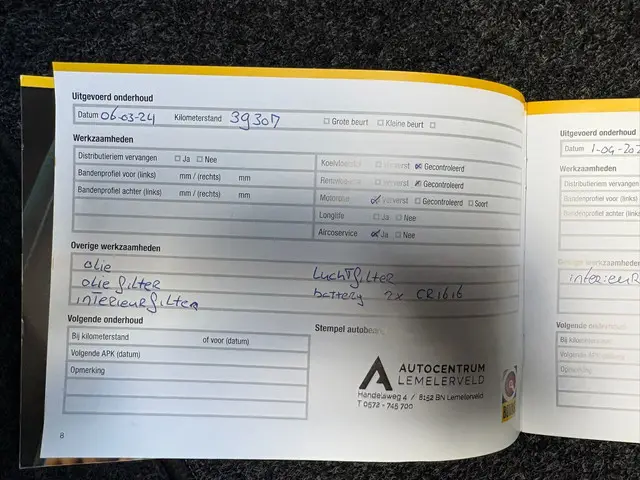 Uitgevoerd onderhoud
Datum 06-03-24 Kilometerstand 39307 Grote beurt Kleine beurt
Werkzaamheden
Distributieriem vervangen Ja Nee
Bandenprofiel voor (links) mm / (rechts) mm
Bandenprofiel achter (links) mm / (rechts) mm
Koelvloeistof Ververst Gecontroleerd
Remvloeistof Ververst Gecontroleerd
Motorolie Ververst Gecontroleerd Soort
Longlife Ja Nee
Aircoservice Ja Nee
Overige werkzaamheden
olie
olie filter
interieurfilter
Luchtfilter
battery 2x CR1616
Volgende onderhoud
Bij kilometerstand of voor (datum)
Volgende APK (datum)
Opmerking
Stempel autobedrijf
AUTOCENTRUM
LEMELERVELD
Handelsweg 4 / 8152 BN Lemelerveld
T 0572 - 745 700
BOVAG
8
Uitgevoerd onderhoud
Datum
Werkzaamheden
Distributieriem vervangen
Bandenprofiel voor (links)
Bandenprofiel achter (links)
Overige werkzaamheden
interieur
Volgende onderhoud
Bij kilometerstand
Volgende APK (datum)
Opmerking